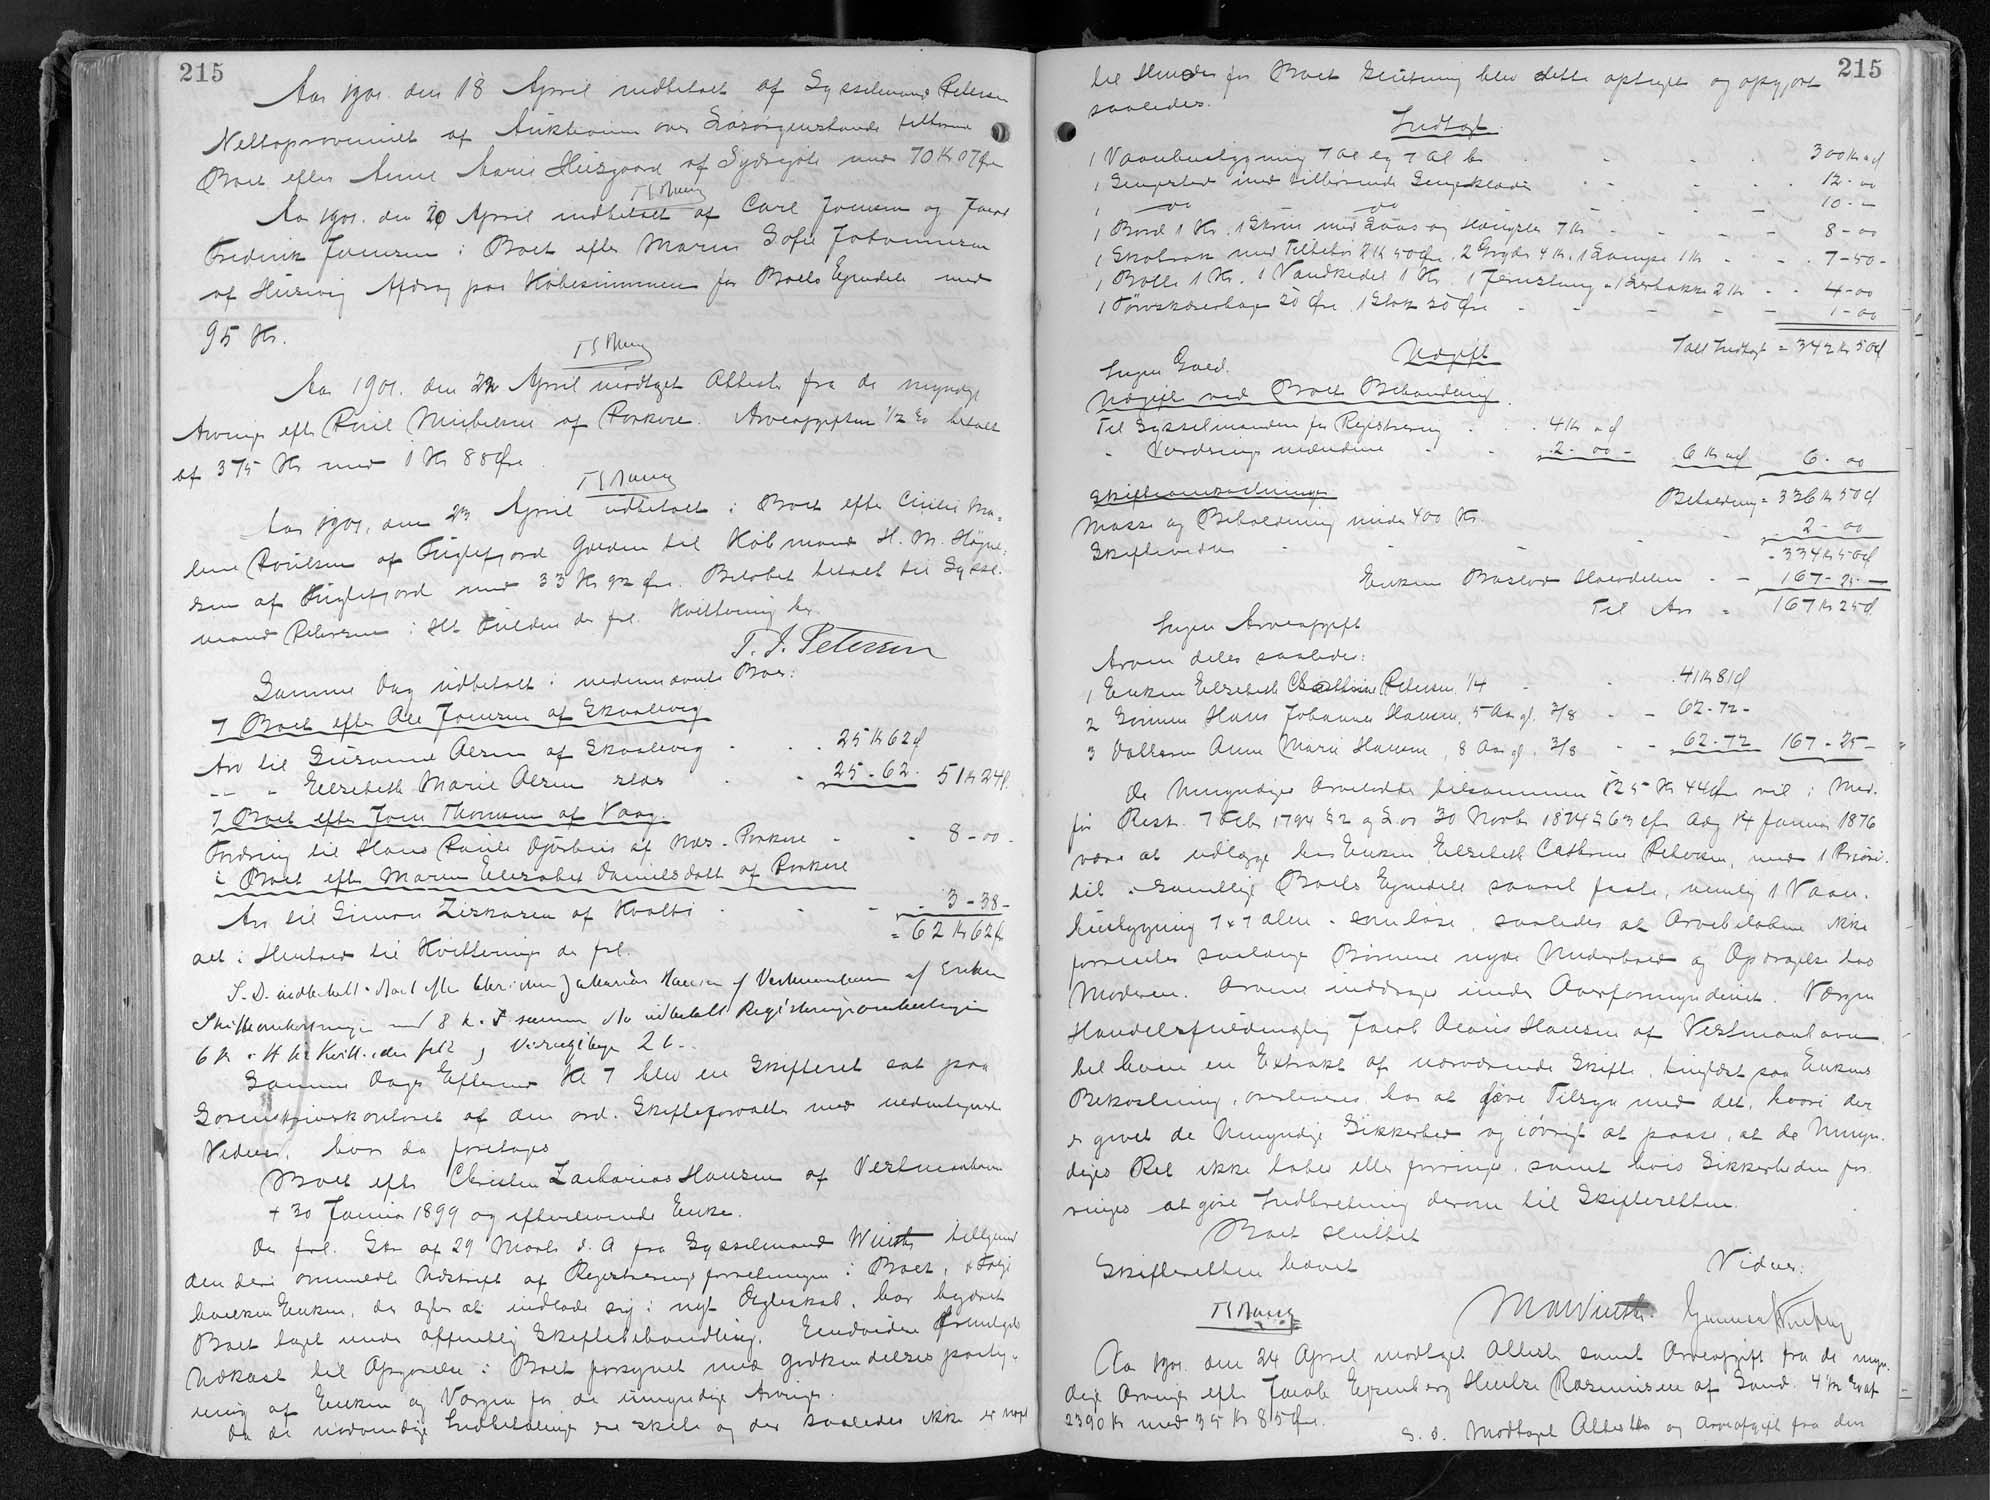 215
Aar 1901. den 18 April indbetalt af Sysselmand Petersen
Nettoprovenuet af Auktionen over Løsørgenstande tilhørende
Boet efter Anne Marie Huusgaard af Sydrugøte med 70 Kr 07 Øre
Aar 1901. den 20 April indbetalt af Carl Joensen og Jacob
Frederik Joensen i Boet efter Maren Sofie Johannesen
af Husevig Afdrag paa Købesummen for Boets Ejendele med
95 Kr.
Aar 1901. den 22 April modtaget Attester fra de myndige
Arvinger efter Poul Michelsen af Porkere. Arveafgiften 1/2 % betalt
af 375 Kr med 1 Kr 88 Øre
Aar 1901, den 23 April udbetalt i Boet efter Cicilie Ma-
lene Poulsen af Fuglefjord Gælden til Købmand H. M. Højne-
sen af Fuglefjord med 33 Kr 92 Øre. Beløbet betalt til Syssel-
mand Petersen i Hht Fuldm der frl. Kvittering her
T. J. Petersen
Samme Dag udbetalt i nedennævnte Boer:
7 Boet efter Ole Joensen af Skaalevig
Arv til Susanne Olsen af Skaalevig - - 25 Kr 62 Ø
- - Elisabeth Marie Olsen - - 25 - 62 - 51 Kr 24 Ø
7 Boet efter Joen Thomsen af Vaag.
Fordring til Hans Poule Djurhus af Næs - Porkere - - 8 - 00 -
i Boet efter Maren Elisabet Danielsdatt af Porkere
Arv til Simon Ziskasen af Kvalbø - - - 3 - 38 -
= 62 Kr 62 Ø
alt i Henhold til Kvitteringer der frl.
S. D. indbetalt i Boet efter Christen Zakarias Hansen af Vestmanhavn af Enken
Skifteomkostninger med 8 k.
Samme Dags Efterm Kl 7 blev en Skifteret sat paa
Sorenskriverkontoret af den ord. Skifteforvalter med nedentegnede
Vidner, hvor da foretoges
Boet efter Christen Zacharias Hansen af Vestmanhavn
+ 30 Januar 1899 og efterlevende Enke.
Der frl. Skr af 29 Marts d. A fra Sysselmand Winther tilligemed
den deri ommeldte Udskrift af Registreringsforretningen i Boet, ifølge
hvilken Enken, der agter at indlade sig i nyt Ægteskab, har begæret
Boet taget under offentlig Skiftebehandling. Endvidere fremlagdes
Udkast til Opgørelse i Boet forsynet med godkendelsespaateg-
ning af Enken og Værgen for de umyndige Arvinger.
Da de nødvendige Indbetalinger ere skete og der saaledes ikke er noget
215
til Hinder for Boets Slutning blev dette optaget og opgjort
saaledes.
Indtægt.
1 Vaaenhusbygning 7 Al lg 7 Al br - - - 300 Kr 00 Ø
1 Sengested med tilhørende Sengeklæder - - - 12 - 00
1 do do - - - 10 - -
1 Bord 1 Kr. 1 Skrin med Laas og Hængsler 7 Kr - - - 8 - 00
1 Skabrok med Tilbehør 2 Kr 50 Øre, 2 Gryder 4 Kr, 1 Lampe 1 Kr - - - 7 - 50 -
1 Balle 1 Kr. 1 Vandkedel 1 Kr. 1 Jernstang - 1 2 Kr - - 4 - 00
1 50 Øre. 1 50 Øre - - - 1 - 00
Tals Indtægt = 342 Kr 50 Ø
Udgift
Ingen Gæld.
Udgift ved Boets Behandling
Til Sysselmanden for Registrering - - - 4 Kr 00 Ø
- Vurderingsmændene - - 2 - 00 - 6 Kr 00 Ø 6 - 00
Beholdning = 336 Kr 50 Ø
Skifteomkostninger
Masse og Beholdning under 400 Kr. 2 - 00
Skiftevidner - - - - 334 Kr 50 Ø
Enkens Boslod Halvdelen - - 167 - 25 -
Til Arv = 167 Kr 25 Ø
Ingen Arveafgift
Arven deles saaledes:
1 Enken Elisabeth Cathrine Petersen, 1/4 - - 41 Kr 81 Ø
2 Sønnen Hans Johannes Hansen, 5 Aar gl. 3/8 - - 62 - 72 -
3 Datteren Anne Marie Hansen, 8 Aar gl. 3/8 - - 62 - 72 167 - 25 -
De Umyndiges Arvelodder tilsammen 125 Kr 44 Øre vil i Med-
før Reskr. 7 Febr 1794 § 2 og L ov 30 Novbr 1874 § 63 cfr Adg 14 Januar 1876
være at udlægge hos Enken Elisabeth Cathrine Petersen, med 1 Priori-
tet i samtlige Boets Ejendele saavel faste, nemlig 1 Vaan-
husbygning 7 x 7 Alen - som løse, saaledes at Arvebeløbene ikke
forrentes saalænge Børnene nyde Underhold og Opdragelse hos
Moderen. Arvene inddrages under Overformynderiet. Værgen
Handelsfuldmægtig Jacob Hansen af Vestmanhavn
til hvem en Extrakt af nærværende Skifte, tinglæst paa Enkens
Bekostning, overleveres har at føre Tilsyn med det, hvori der
er givet de Umyndige Sikkerhed og iøvrigt at paase, at de Umyn-
diges Ret ikke tabes eller forringes, samt hvis Sikkerheden for-
ringes at gøre Indberetning derom til Skifteretten.
Boet sluttet
Skifteretten hævet
Vidner:
Aar 1901. den 24 April modtaget Attester samt Arveafgift fra de myn-
dige Arvinger efter Jacob Hentze Rasmussen af Sand. af
2390 Kr med 35 Kr 85 Øre.
S. D. Modtaget Attester og Arveafgift fra den